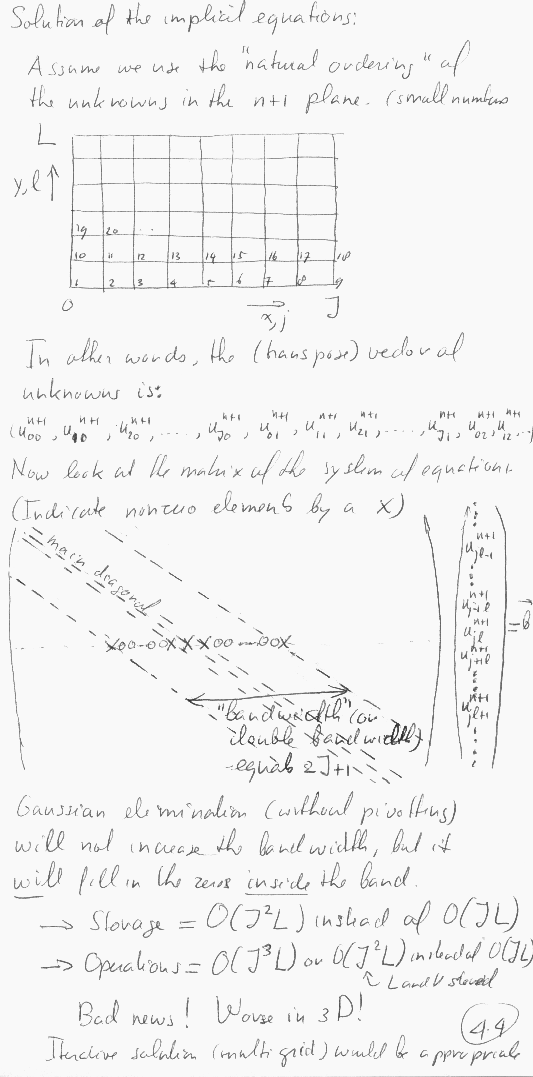 Solution of the implicit equations:
Assume we use the "natural ordering" of
the unknowns in the n+1 plane. (small numbers
L
y, l ↑
19 20 ...
10 11 12 13 14 15 16 17 18
1 2 3 4 5 6 7 8 9
0 → x, j J
In other words, the (transpose) vector of
unknowns is:
(u_00^{n+1}, u_10^{n+1}, u_20^{n+1}, ...., u_J0^{n+1}, u_01^{n+1}, u_11^{n+1}, u_21^{n+1}, ...., u_J1^{n+1}, u_02^{n+1}, u_12^{n+1}, ..
Now look at the matrix of the system of equations
(Indicate nonzero elements by a X)
main diagonal
X00-00XXX00--00X
u_{jl-1}^{n+1}
u_{j-1l}^{n+1}
u_{jl}^{n+1}
u_{j+1l}^{n+1}
u_{jl+1}^{n+1}
= b
"bandwidth" (or
double bandwidth)
equals 2J+1
Gaussian elimination (without pivotting)
will not increase the bandwidth, but it
will fill in the zeros inside the band.
→ Storage = O(J²L) instead of O(JL)
→ Operations = O(J³L) or O(J²L) instead of O(JL)
↑ L and U stored
Bad news! Worse in 3D!
4.4
Iterative solution (multigrid) would be appropriate